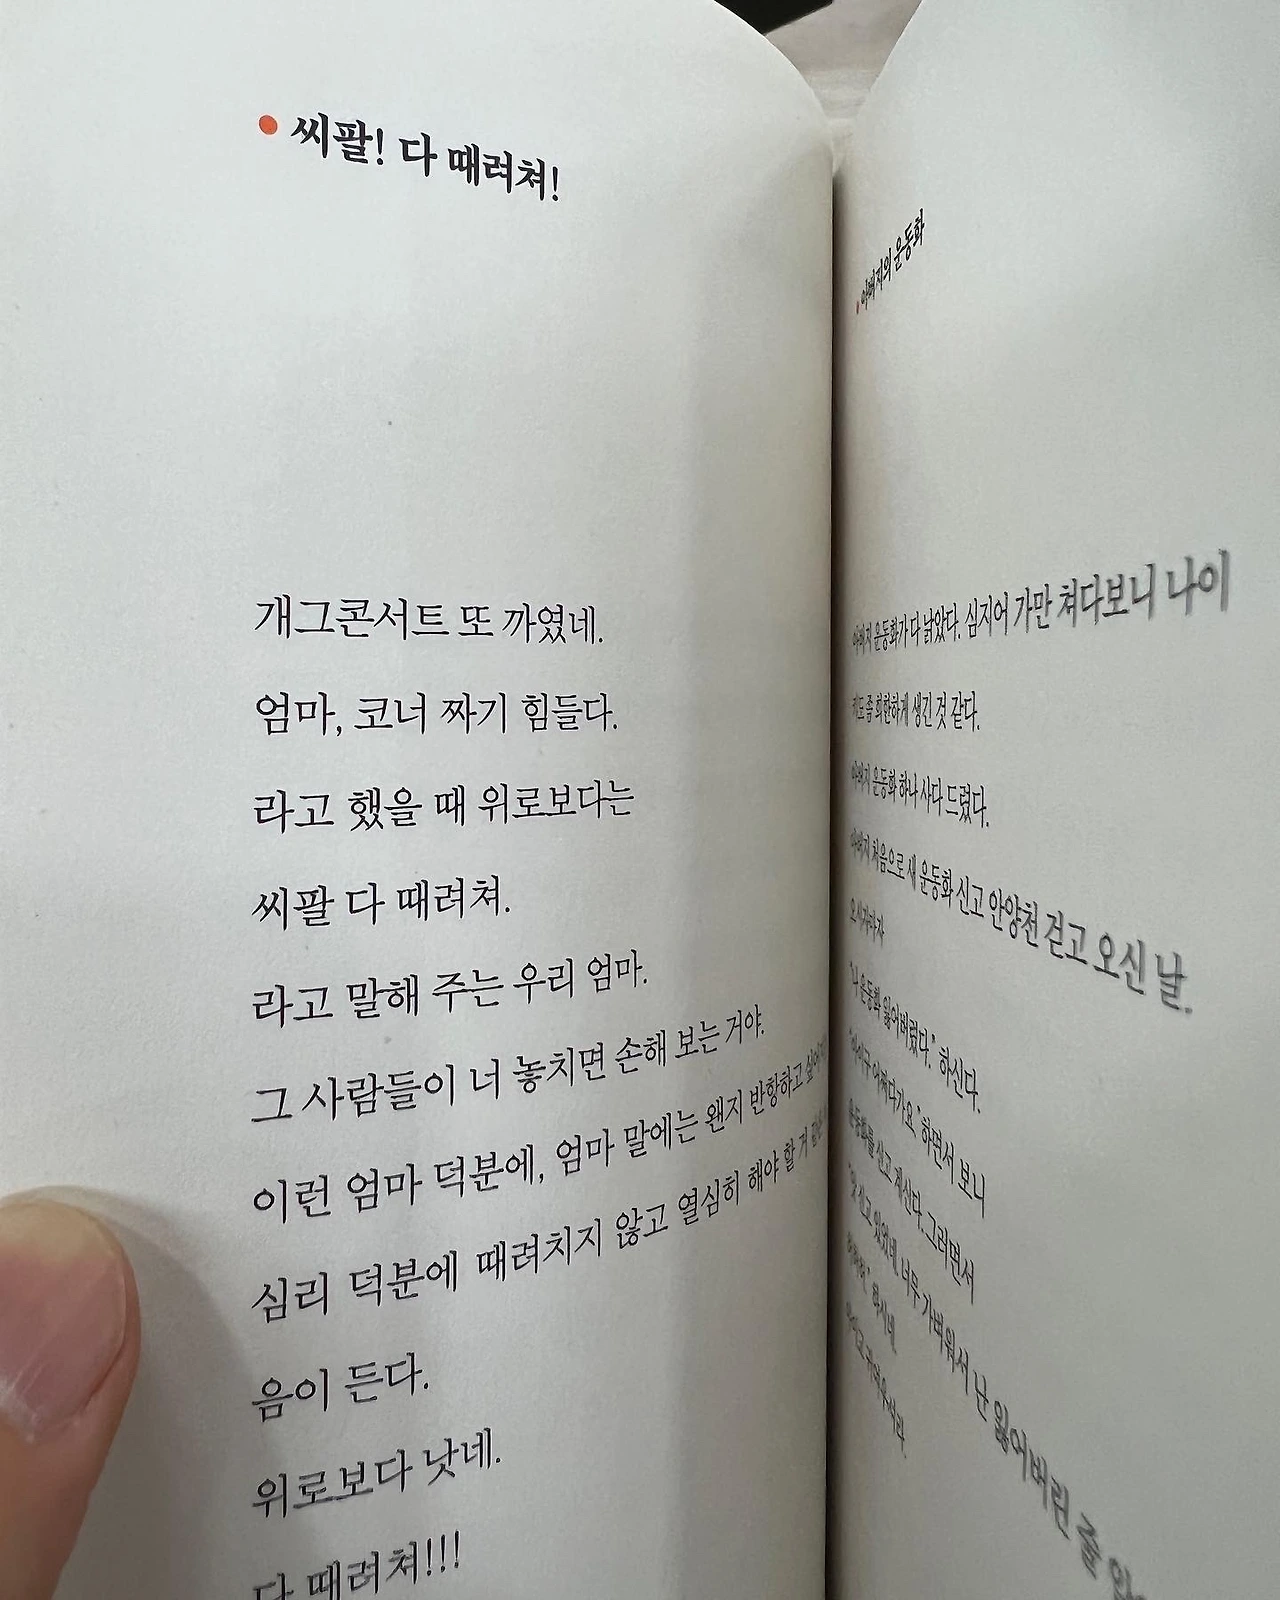 씨팔! 다 때려쳐!
개그콘서트 또 까였네.
엄마, 코너 짜기 힘들다.
라고 했을 때 위로보다는
씨팔 다 때려쳐.
라고 말해 주는 우리 엄마.
그 사람들이 너 놓치면 손해 보는 거야.
이런 엄마 덕분에, 엄마 말에는 왠지 반항하고
심리 덕분에 때려치지 않고 열심히 해야 할 거 같은
음이 든다.
위로보다 낫네.
다 때려쳐!!!
아버지의 운동화
아버지 운동화가 다 낡았다. 심지어 가만 쳐다보니 나이
키도 좀 희한하게 생긴 것 같다.
아버지 운동화 하나 사다 드렸다.
아버지 처음으로 새 운동화 신고 안양천 걷고 오신 날.
오시자마자
"나 운동화 잃어버렸다." 하신다.
"아이구 어쩌다가요." 하면서 보니
운동화를 신고 계신다. 그러면서
신고 있었네. 너무 가벼워서 난 잃어버린 줄
하시네.
귀여우셔라.